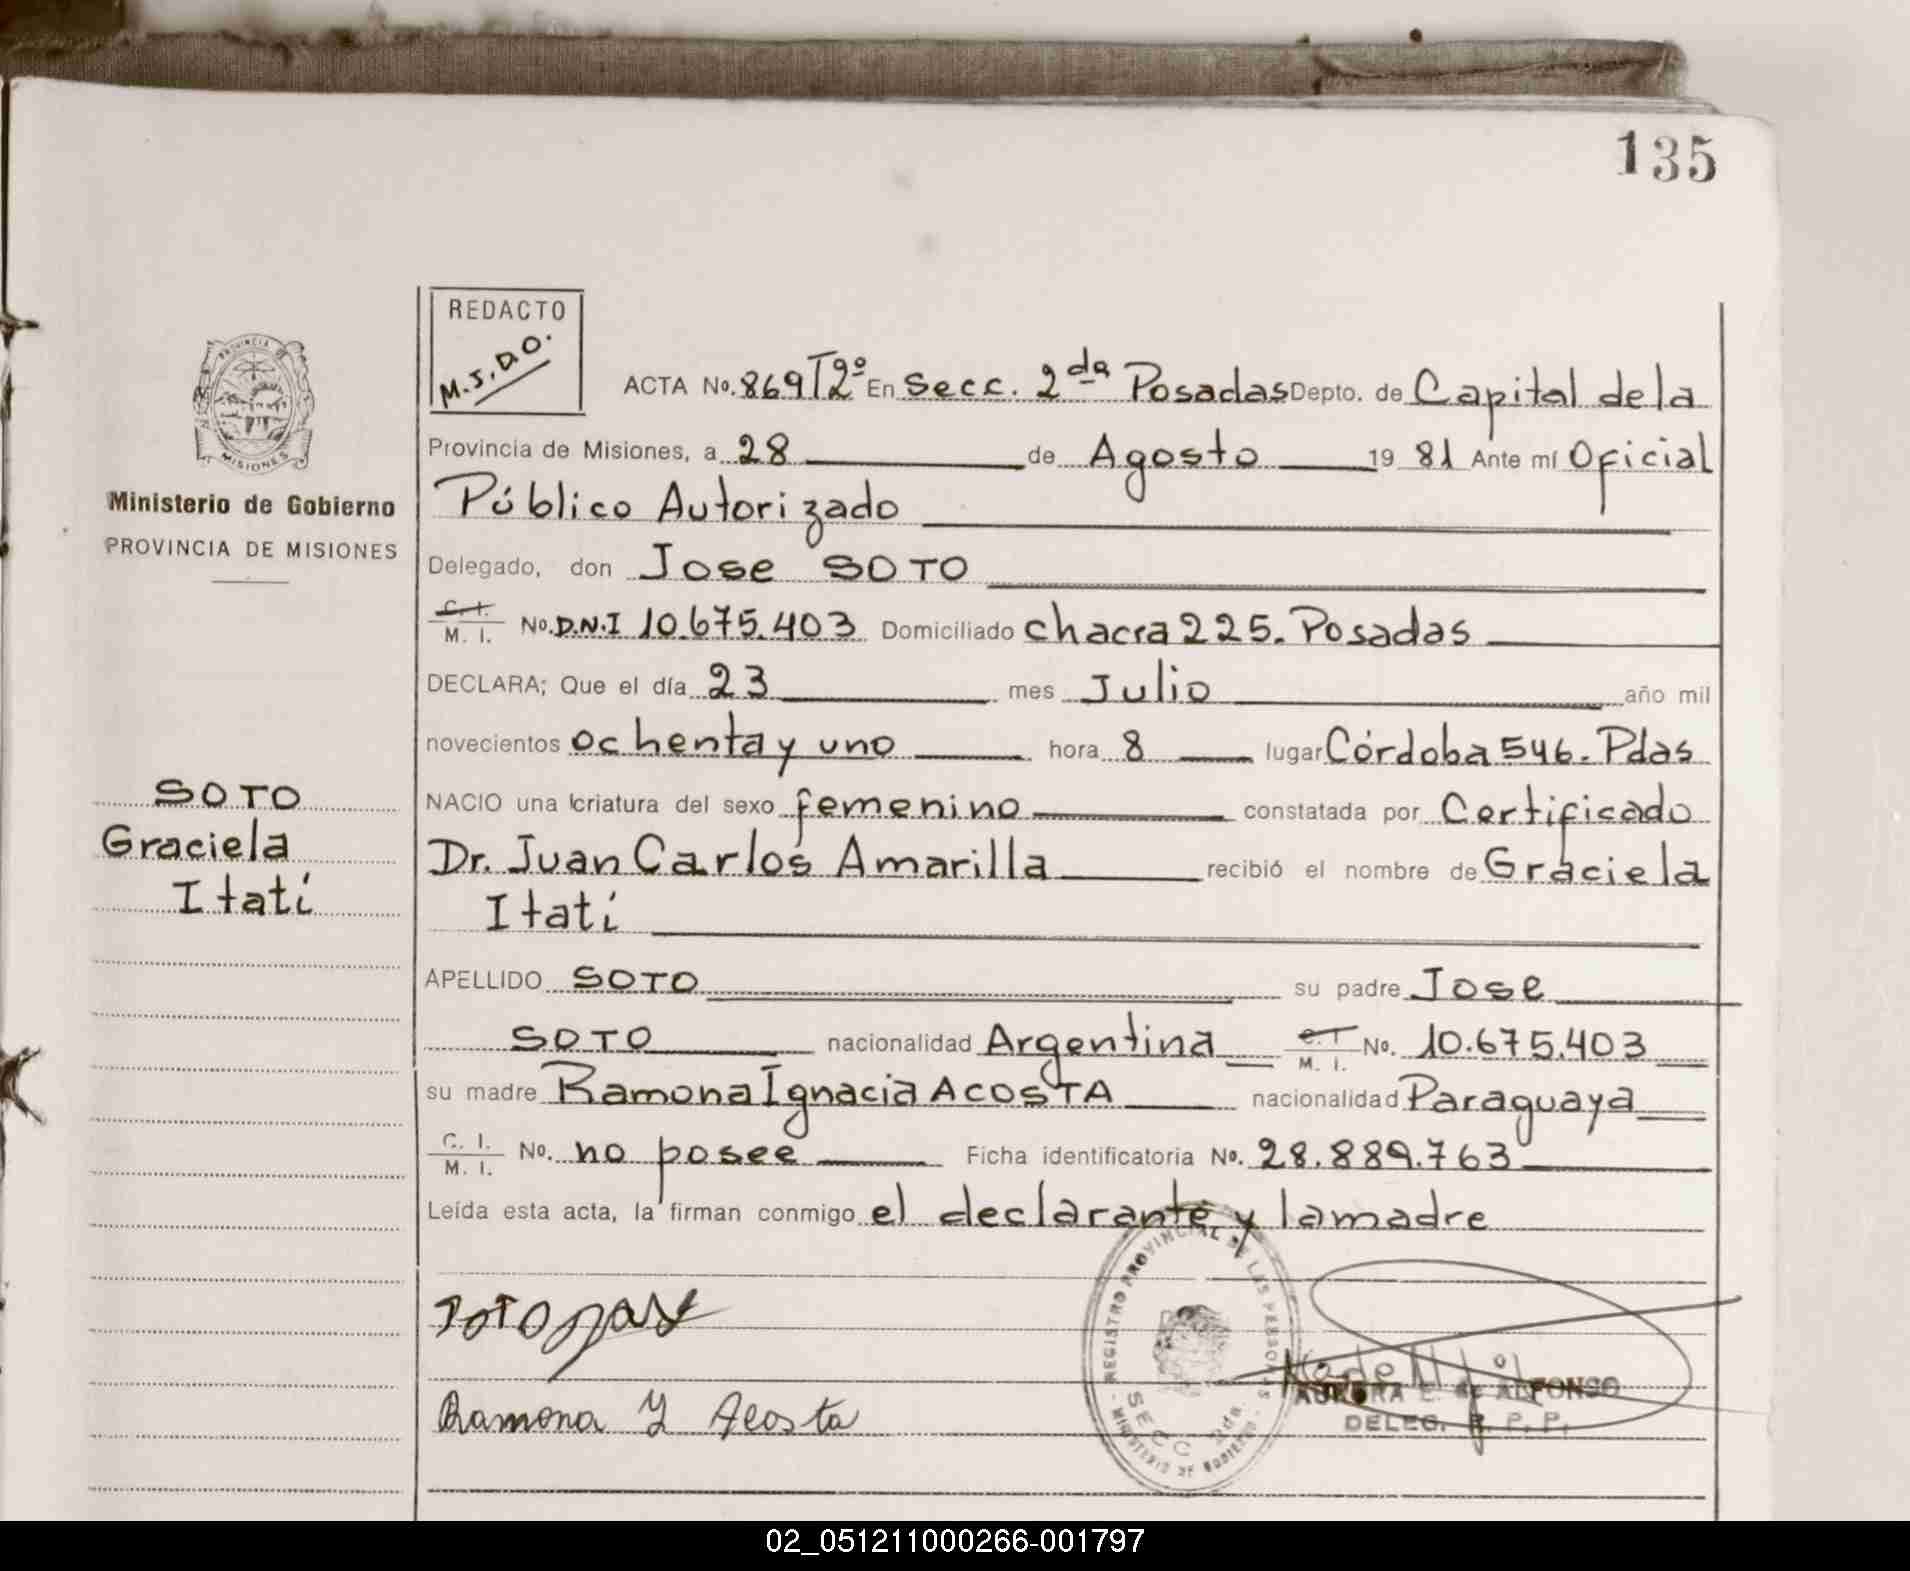 135
REDACTO
M.J.D.O.
ACTA No. 869 T2º En Secc. 2da Posadas Depto. de Capital de la
Provincia de Misiones, a 28 de Agosto 19 81 Ante mí Oficial
Público Autorizado
Delegado, don Jose SOTO
C. I. M. I. No. D.N.I 10.675.403 Domiciliado chacra 225. Posadas
DECLARA; Que el día 23 mes Julio año mil
novecientos ochenta y uno hora 8 lugar Córdoba 546. Pdas
NACIO una criatura del sexo femenino constatada por Certificado
Dr. Juan Carlos Amarilla recibió el nombre de Graciela
Itatí
APELLIDO SOTO su padre Jose
SOTO nacionalidad Argentina C.I. M. I. No. 10.675.403
su madre Ramona Ignacia ACOSTA nacionalidad Paraguaya
C. I. M. I. No. no posee Ficha identificatoria No. 28.889.763
Leída esta acta, la firman conmigo el declarante y la madre
Ramona Y Acosta
REGISTRO PROVINCIAL DE LAS PERSONAS
SECC 2da.
MINISTERIO DE GOBIERNO
AURORA E. de ALFONSO
DELEG. R. P. P.
PROVINCIA DE
MISIONES
Ministerio de Gobierno
PROVINCIA DE MISIONES
SOTO
Graciela
Itatí
02_051211000266-001797